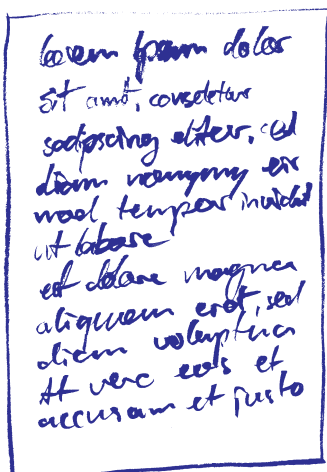 lorem Ipsum dolor
sit amt, consetetur
sadipscing elitr, sed
diam nonymy eir
mod tempor invidut
ut labore
et dolore magna
aliquam erat, sed
diam voluptua
At vero eos et
accusam et justo